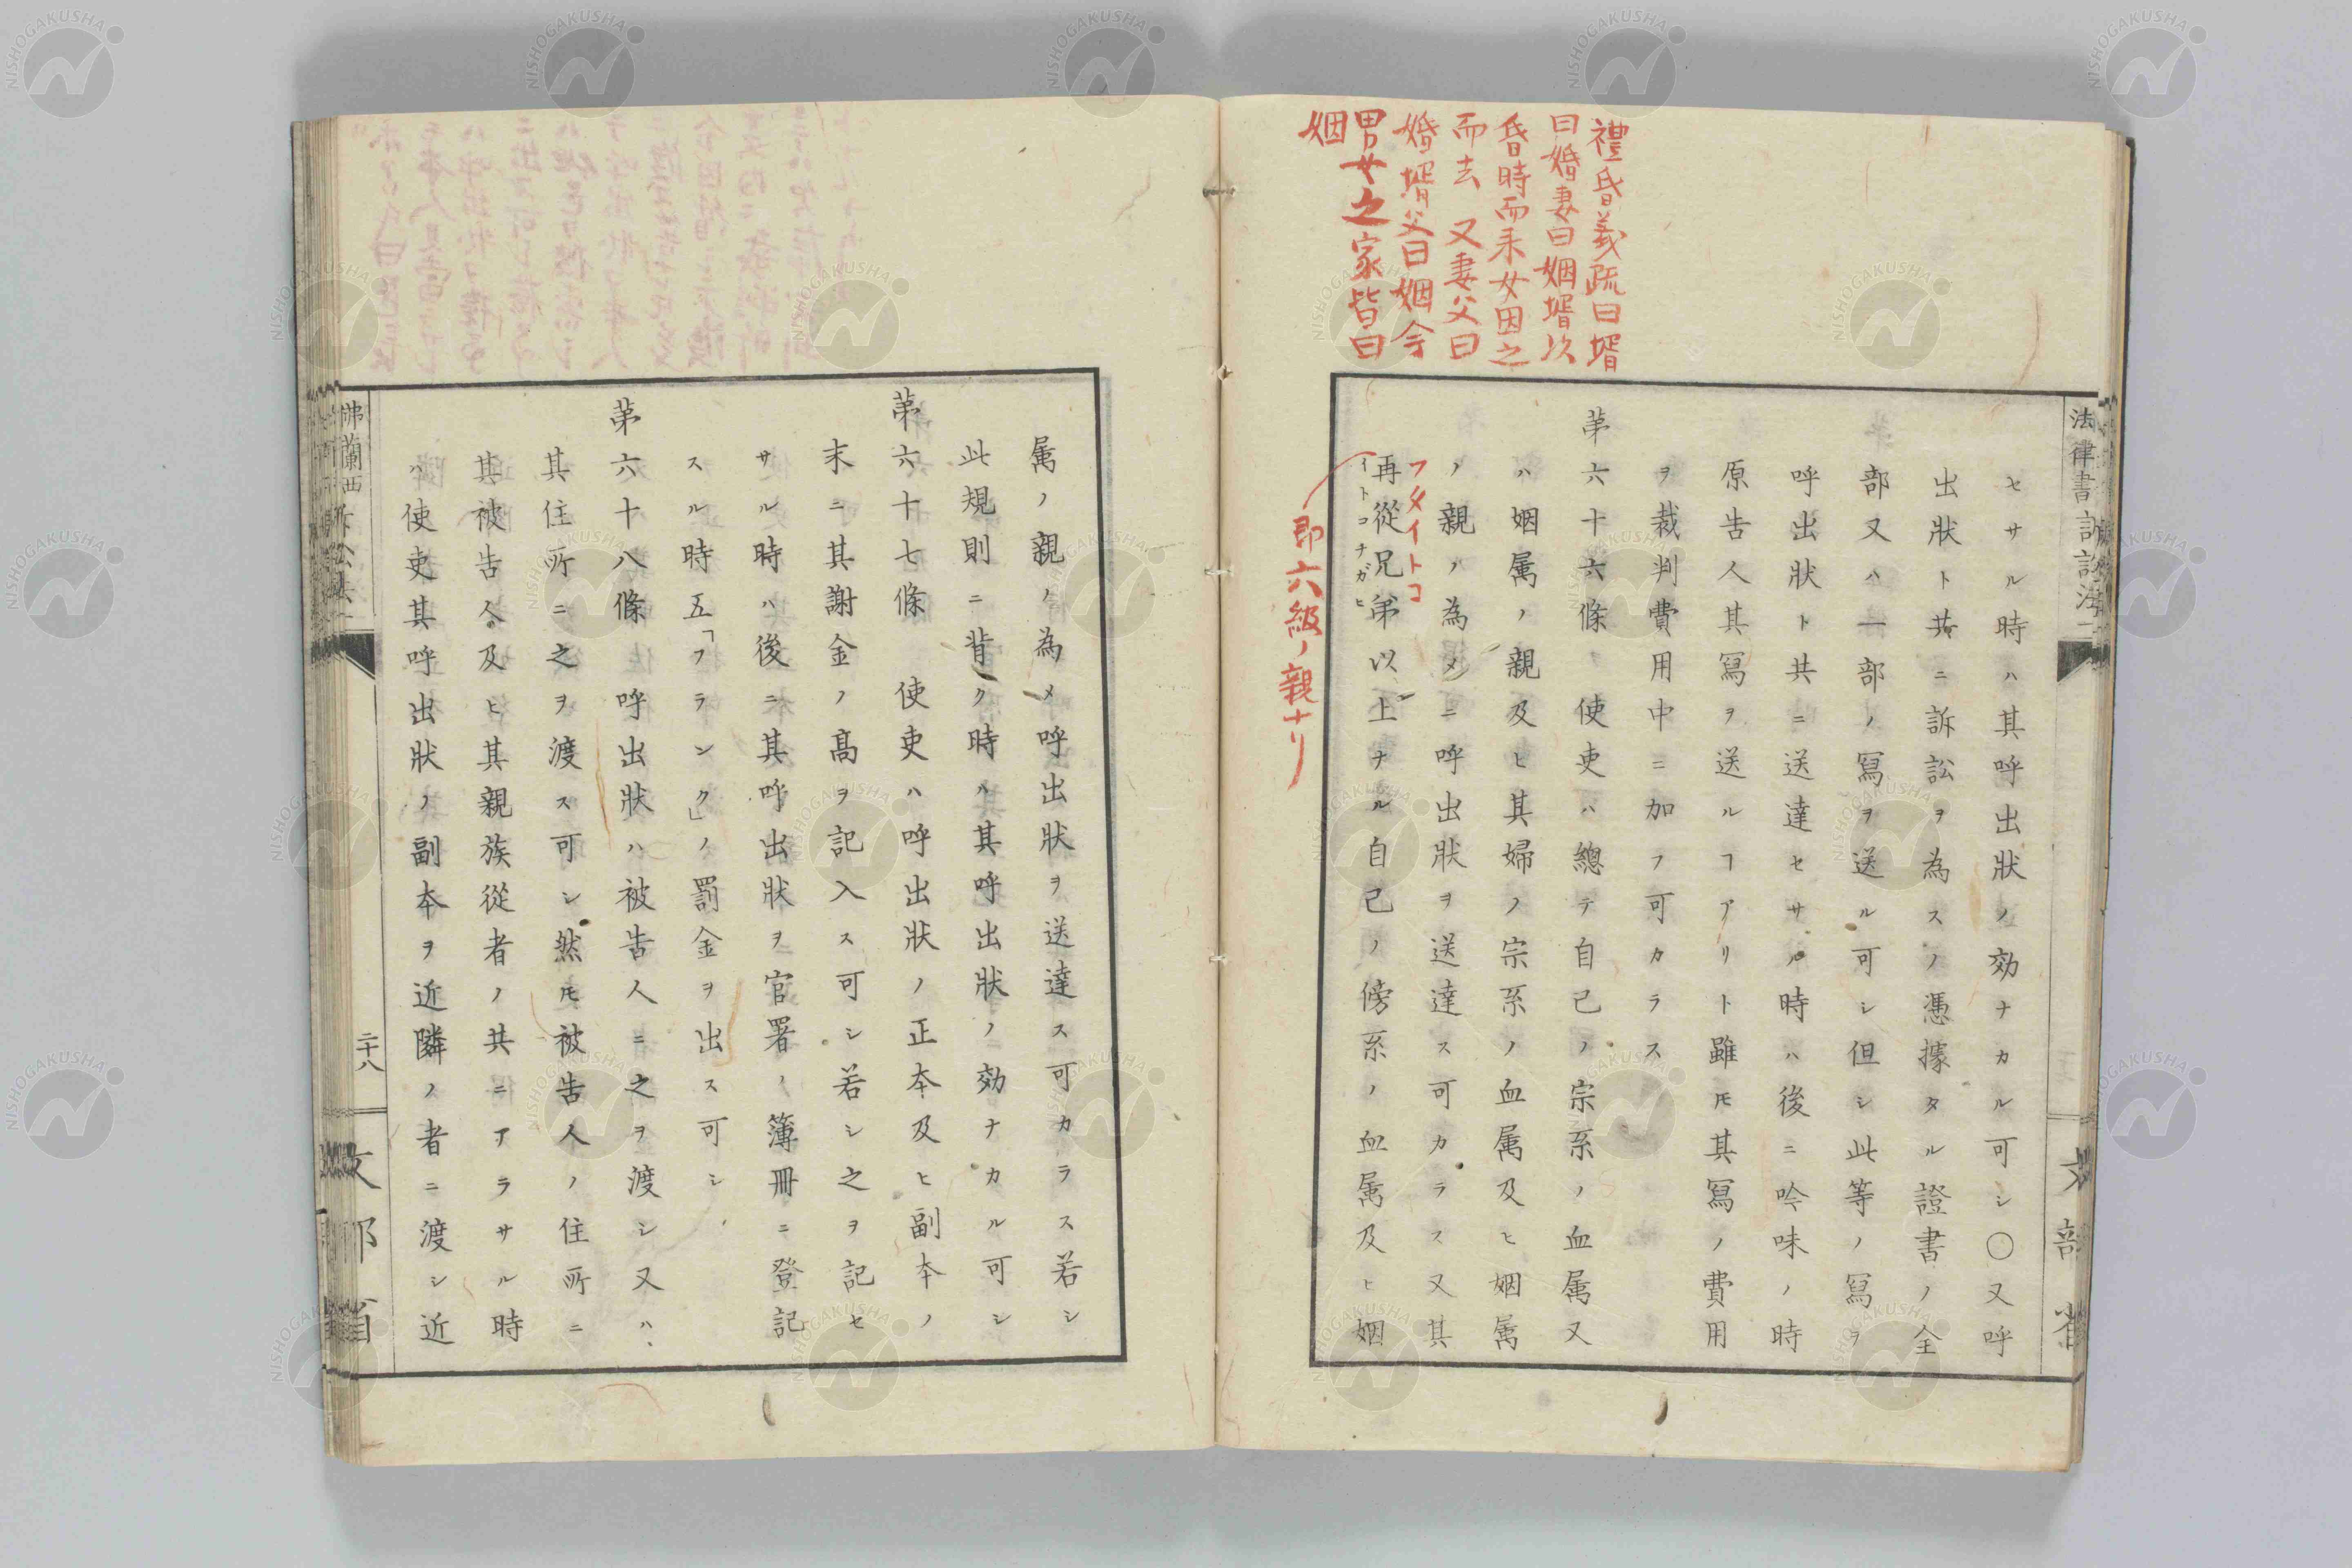 禮昏義疏曰壻
曰婚妻曰姻壻以
昏時而来女因之
而去 又妻父曰
婚壻父曰姻今
男女之家皆曰
姻
法律書訴訟法一
文部省
セサル時ハ其呼出状ノ効ナカル可シ〇又呼
出狀ト共ニ訴訟ヲ為スノ憑據タル證書ノ全
部又ハ一部ノ寫ヲ送ル可シ但シ此等ノ寫ヲ
呼出狀ト共ニ送達セサル時ハ後ニ吟味ノ時
原告人其寫ヲ送ルヿアリト雖モ其寫ノ費用
ヲ裁判費用中ニ加フ可カラス
苐六十六條 使吏ハ總テ自己ノ宗系ノ血属又
ハ姻属ノ親及ヒ其婦ノ宗系ノ血属及ヒ姻属
ノ親ノ為メニ呼出狀ヲ送達ス可カラス又其
フタイトコ
再從兄弟以上ナル自己ノ傍系ノ血属及ヒ姻
イトコナガヒ
即六級ノ親ナリ
属ノ親ノ為メ呼出狀ヲ送達ス可カラス若シ
此規則ニ背ク時ハ其呼出狀ノ効ナカル可シ
苐六十七條 使吏ハ呼出狀ノ正本及ヒ副本ノ
末ニ其謝金ノ髙ヲ記入ス可シ若シ之ヲ記セ
サル時ハ後ニ其呼出狀ヲ官署ノ簿冊ニ登記
スル時五「フランク」ノ罰金ヲ出ス可シ
苐六十八條 呼出狀ハ被告人ニ之ヲ渡シ又ハ
其住所ニ之ヲ渡ス可シ然𪜈被告人ノ住所ニ
其被告人及ヒ其親族從者ノ共ニアラサル時
ハ使吏其呼出狀ノ副本ヲ近隣ノ者ニ渡シ近
佛蘭西訴訟法一
二十八
文部省
NISHOGAKUSHA